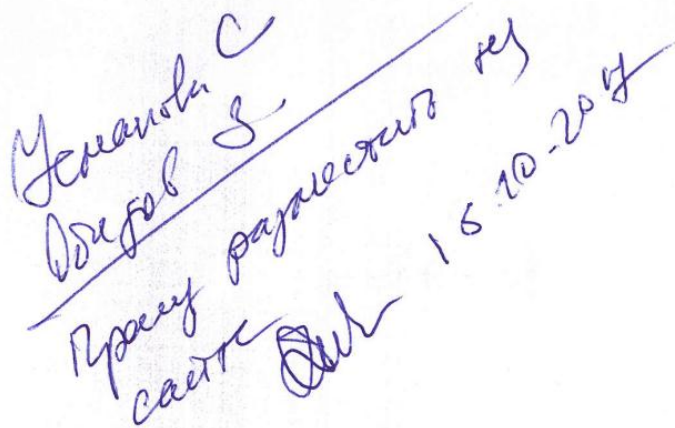 Усманова С
Обидов З
Прошу разместить на
сайте 16.10.20